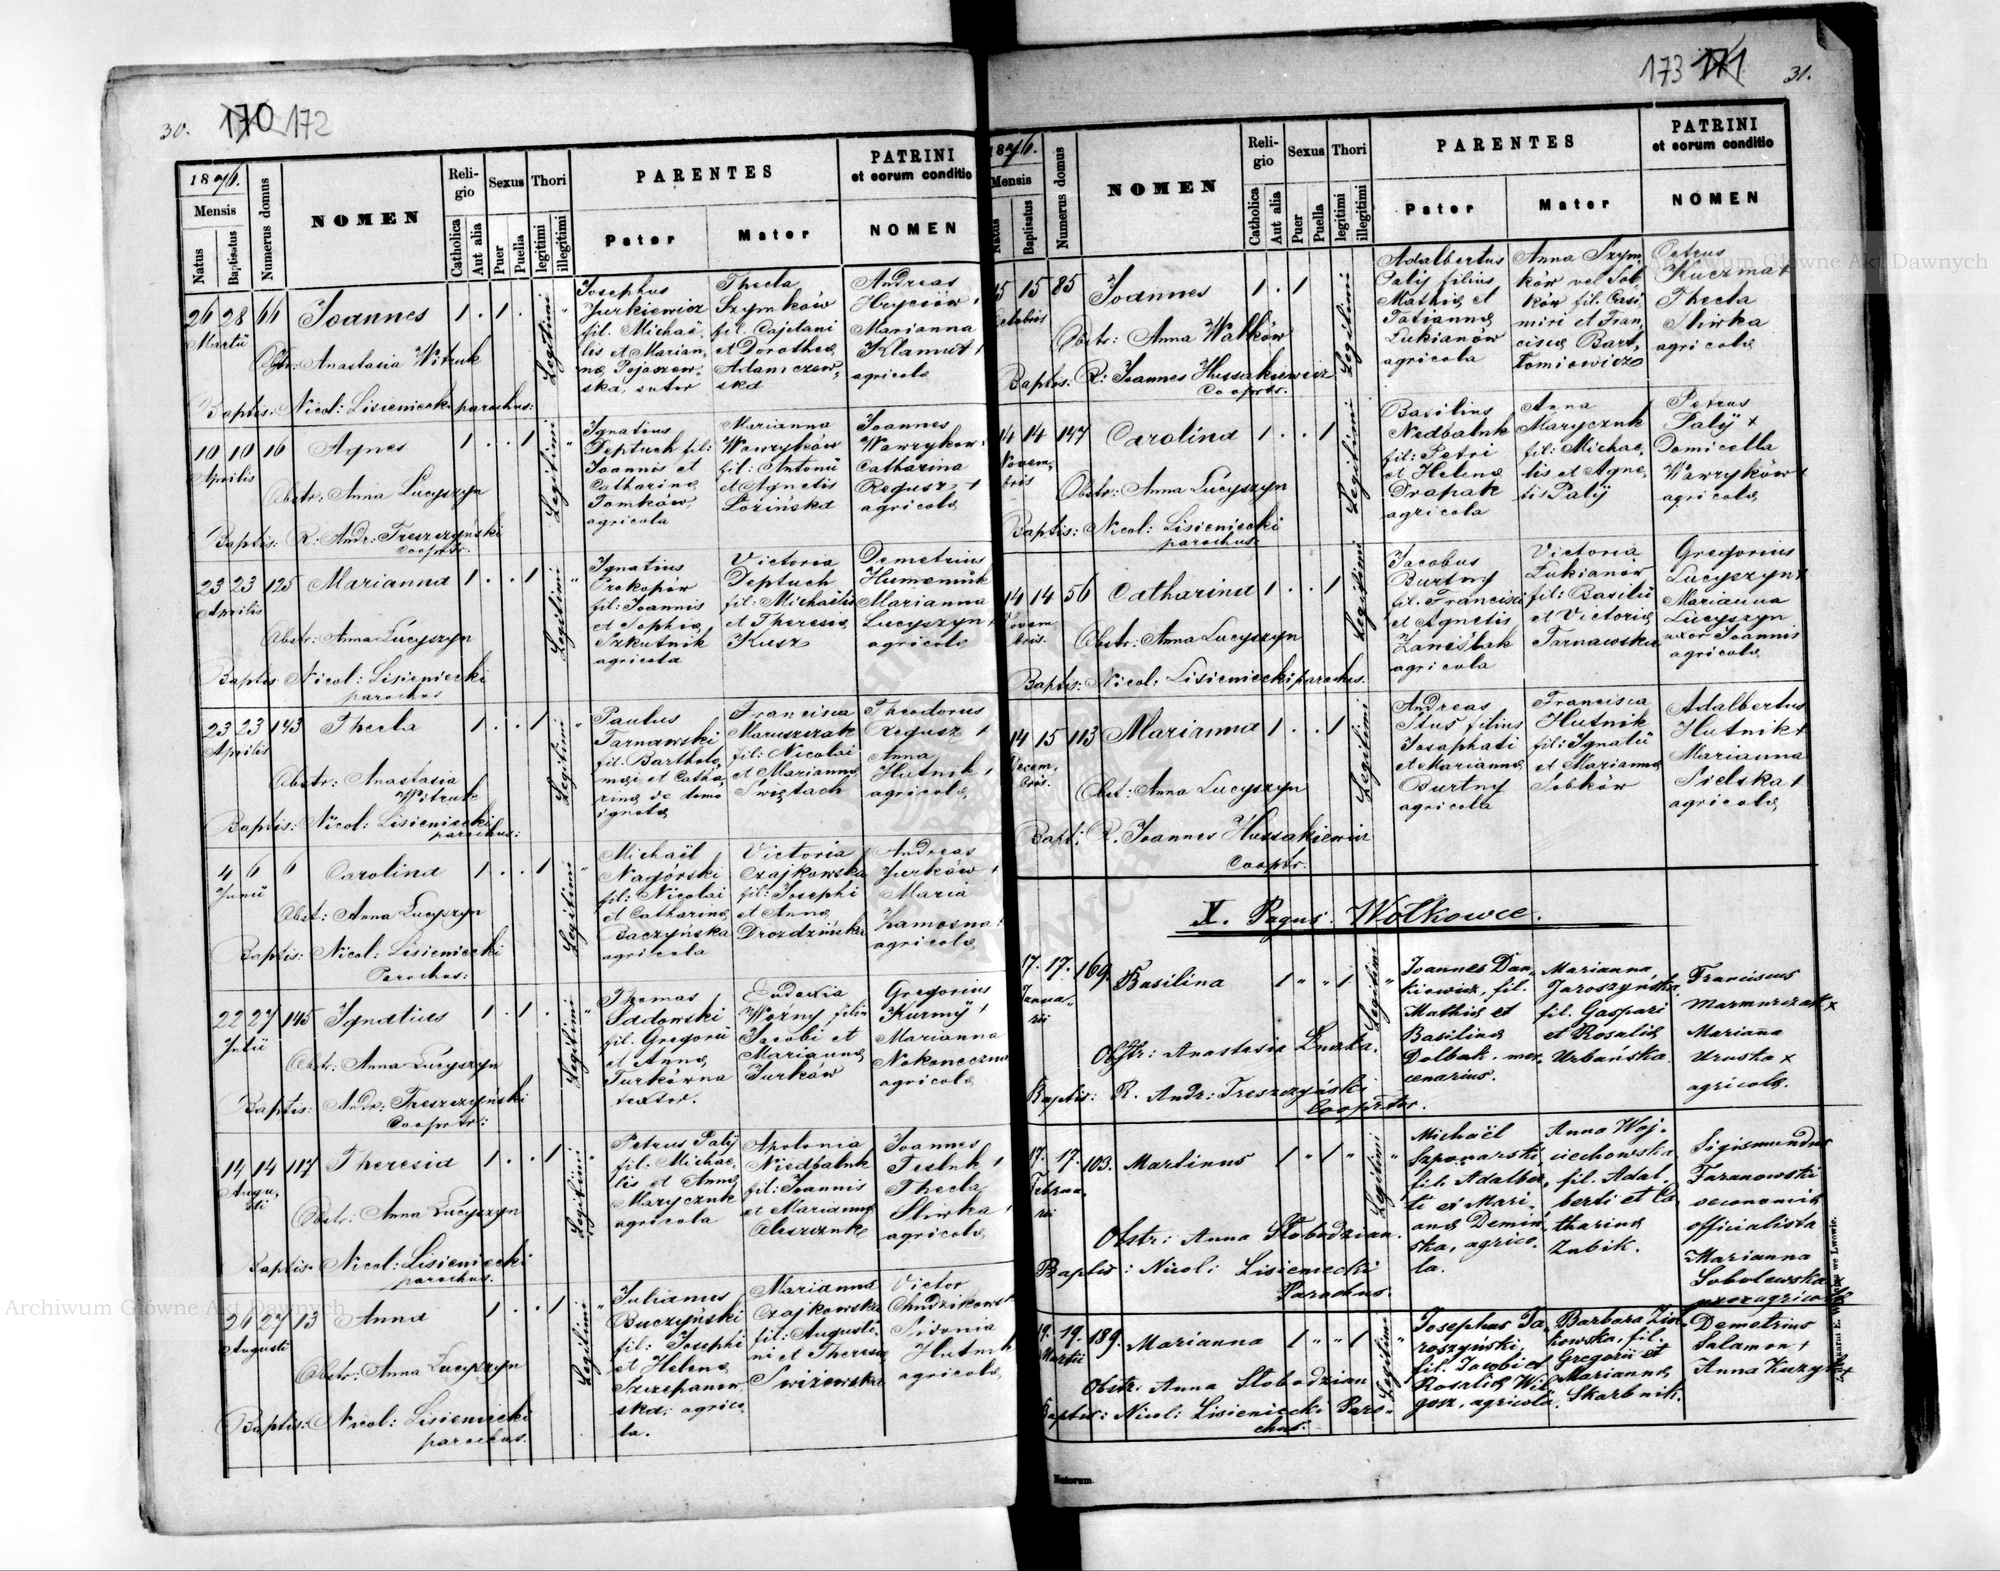 30. 170 172
1876.
Mensis
Natus
Baptisatus
Numerus domus
NOMEN
Reli-
gio
Catholica
Aut alia
Sexus
Puer
Puella
Thori
legitimi
illegitimi
PARENTES
Pater
Mater
PATRINI
et eorum conditio
NOMEN
26 28 66 Joannes 1 . 1 .
Martii
Obstr: Anastasia Witruk
Baptis: Nicol: Lisieniecki parochus:
Legitimi
Josephus
Jurkiewicz
fil. Michaë
lis et Marian,
næ
ska, sutor
Thecla
Szymków
fil. Cajetani
et Dorotheæ
Adamczew,
ska
Andreas
Hryciów +
Marianna
Klamut +
agricolæ
10 10 16 Agnes 1 . . 1
Aprilis
Obstr: Anna Lucyszyn
Baptis: R: Andr: Treszczyński
Cooprtr.
Legitimi
Ignatius
Deptuch fil:
Joannis et
Catharinæ
Tomków,
agricola
Marianna
Wawryków
fil: Antonii
et Agnetis
Łozińska
Joannes
Wawryków +
Catharina
Regusz +
agricolæ
23 23 125 Marianna 1 . . 1
Aprilis
Obstr: Anna Lucyszyn
Baptis: Nicol: Lisieniecki
parochus
Legitimi
Ignatius
Prokopów
fil: Joannis
et Sophiæ
Szkutnik
agricola
Victoria
Deptuch
fil: Michaëlis
et Theresiæ
Kusz
Demetrius
Humeniuk
Marianna
Lucyszyn +
agricolæ
23 23 143 Thecla 1 . . 1
Aprilis
Obstr: Anastasia
Witruk
Baptis: Nicol: Lisieniecki
parochus:
Legitimi
Paulus
Tarnawski
fil. Bartholo,
mæi et Catha,
rinæ de domo
ignotæ
Francisca
Maruszczak
fil: Nicolai
et Mariannæ
Świstach
Theodorus
Regusz +
Anna
Hutnik +
agricolæ
4 6 6 Carolina 1 . . 1
Junii
Obst: Anna Lucyszyn
Baptis: Nicol: Lisieniecki
Parochus:
Legitimi
Michaël
Nagórski
fil: Nicolai
et Catharinæ
Baczyńska
agricola
Victoria
Czajkowska
fil: Josephi
et Annæ
Drozdzińska
Andreas
Jurków +
Maria
Zamosna +
agricolæ
22 27 145 Ignatius 1 . 1 .
Julii
Obstr: Anna Lucyszyn
Baptis: Andr: Treszczyński
Cooprtr:
Legitimi
Thomas
Sadowski
fil. Gregorii
et Annæ
Turkówna
textor.
Eudoxia
Woźny, filia
Jacobi et
Mariannæ
Jurków
Gregorius
Kurmÿ +
Marianna
Nokoneczna
agricolæ
14 14 117 Theresia 1 . . 1
Augu,
sti
Obstr: Anna Lucyszyn
Baptis. Nicol: Lisieniecki
parochus.
Legitimi
Petrus Palÿ
fil: Michae,
lis et Annæ
Maryczuk
agricola
Apolonia
Niedbaluk
fil: Joannis
et Mariannæ
Oleszczuk
Joannes
Tesluk +
Thecla
Sliwka +
agricolæ
26 27 13 Anna 1 . . 1
Augusti
Obstr: Anna Lucyszyn
Baptis: Nicol: Lisieniecki
parochus.
Legitimi
Julianus
Buczyński
fil: Josephi
et Helenæ
Szczepanow,
ska, agrico,
la.
Marianna
Czajkowska
fil: Augusti,
ni et Theresiæ
Swizewska
Victor
Sidonia
Hutnik
agricolæ
173 171 31.
1876.
Mensis
Natus
Baptisatus
Numerus domus
NOMEN
Reli-
gio
Catholica
Aut alia
Sexus
Puer
Puella
Thori
legitimi
illegitimi
PARENTES
Pater
Mater
PATRINI
et eorum conditio
NOMEN
15 15 85 Joannes 1 . 1
Octobris
Obstr: Anna Walków
Baptis: R: Joannes Hussakiewicz
Cooprtr.
Legitimi
Adalbertus
Palÿ filius
Mathiæ et
Tatiannæ
Lukianów
agricola
Anna Szym,
ków vel Sob,
ków fil. Casi,
miri et Fran,
ciscæ Bart,
łomiowicz
Petrus
Kuczma +
Thecla
Sliwka
agricolæ
14 14 147 Carolina 1 . . 1
Novem,
bris
Obstr: Anna Lucyszyn
Baptis: Nicol: Lisieniecki
parochus.
Legitimi
Basilius
Niedbaluk
fil: Petri
et Helenæ
Drapak
agricola
Anna
Maryczuk
fil: Michae,
lis et Agne,
tis Palÿ
Petrus
Palÿ +
Domicella
Wawryków +
agricolæ
14 14 56 Catharina 1 . . 1
Novem
bris.
Obstr: Anna Lucyszyn
Baptis: Nicol: Lisieniecki parochus.
Legitimi
Jacobus
Burtny
fil. Francisci
et Agnetis
Zawiślak
agricola
Victoria
Lukianów
fil: Basilii
et Victoriæ
Tarnawska
Gregorius
Lucyszyn +
Marianna
Lucyszyn
uxor Joannis
agricolæ
14 15 113 Marianna 1 . . 1
Decem,
bris.
Obst: Anna Lucyszyn
Bapt: R. Joannes Hussakiewicz
Cooprtr.
Legitimi
Andreas
Stus filius
Josaphati
et Mariannæ
Burtny
agricola
Francisca
Hutnik
fil: Ignatii
et Mariannæ
Sobków
Adalbertus
Hutnik +
Marianna
Sielska +
agricolæ
X. Pagus. Wołkowce.
17. 17. 169. Basilina 1 " " 1
Janua,
rii
Obstr: Anastasia
Baptis: R. Andr: Treszczyński
Cooprtor.
Legitimi
Joannes Dan,
kiewicz, fil.
Mathiæ et
Basilinæ
Dolbak. mer,
cenarius.
Marianna
Jaroszyńska,
fil. Gaspari
et Rosaliæ
Urbańska.
Franciscus
Marmurczak +
Mariana
Uruska +
agricolæ.
17. 17. 103. Martinus 1 " 1 "
Februa,
rii
Obstr: Anna Słobodzian.
Baptis: Nicol: Lisieniecki
Parochus.
Legitimi
Michaël
Szponarski,
fil. Adalber,
ti et Mari,
annæ Demiń,
ska, agrico,
la.
Anna Woj,
ciechowska
fil. Adal,
berti et Ca,
tharinæ
Zubik.
Sigismundus
Taranowski
oeconomiæ
officialista
Marianna
Sobolewska
uxor agricolæ
19. 19. 189. Marianna 1 " " 1
Martii
Obstr: Anna Słobodzian
Baptis: Nicol: Lisieniecki Paro,
chus.
Legitimi
Josephus Ja,
roszyński,
fil. Jacobi et
Rosaliæ Wil
gosz, agricola.
Barbara Ziół
kowska, fil.
Gregorii et
Mariannæ
Skarbnik.
Demetrius
Salamon +
Anna Kuzyk +
Natorum.
Archiwum Główne Akt Dawnych
Archiwum Główne Akt Dawnych